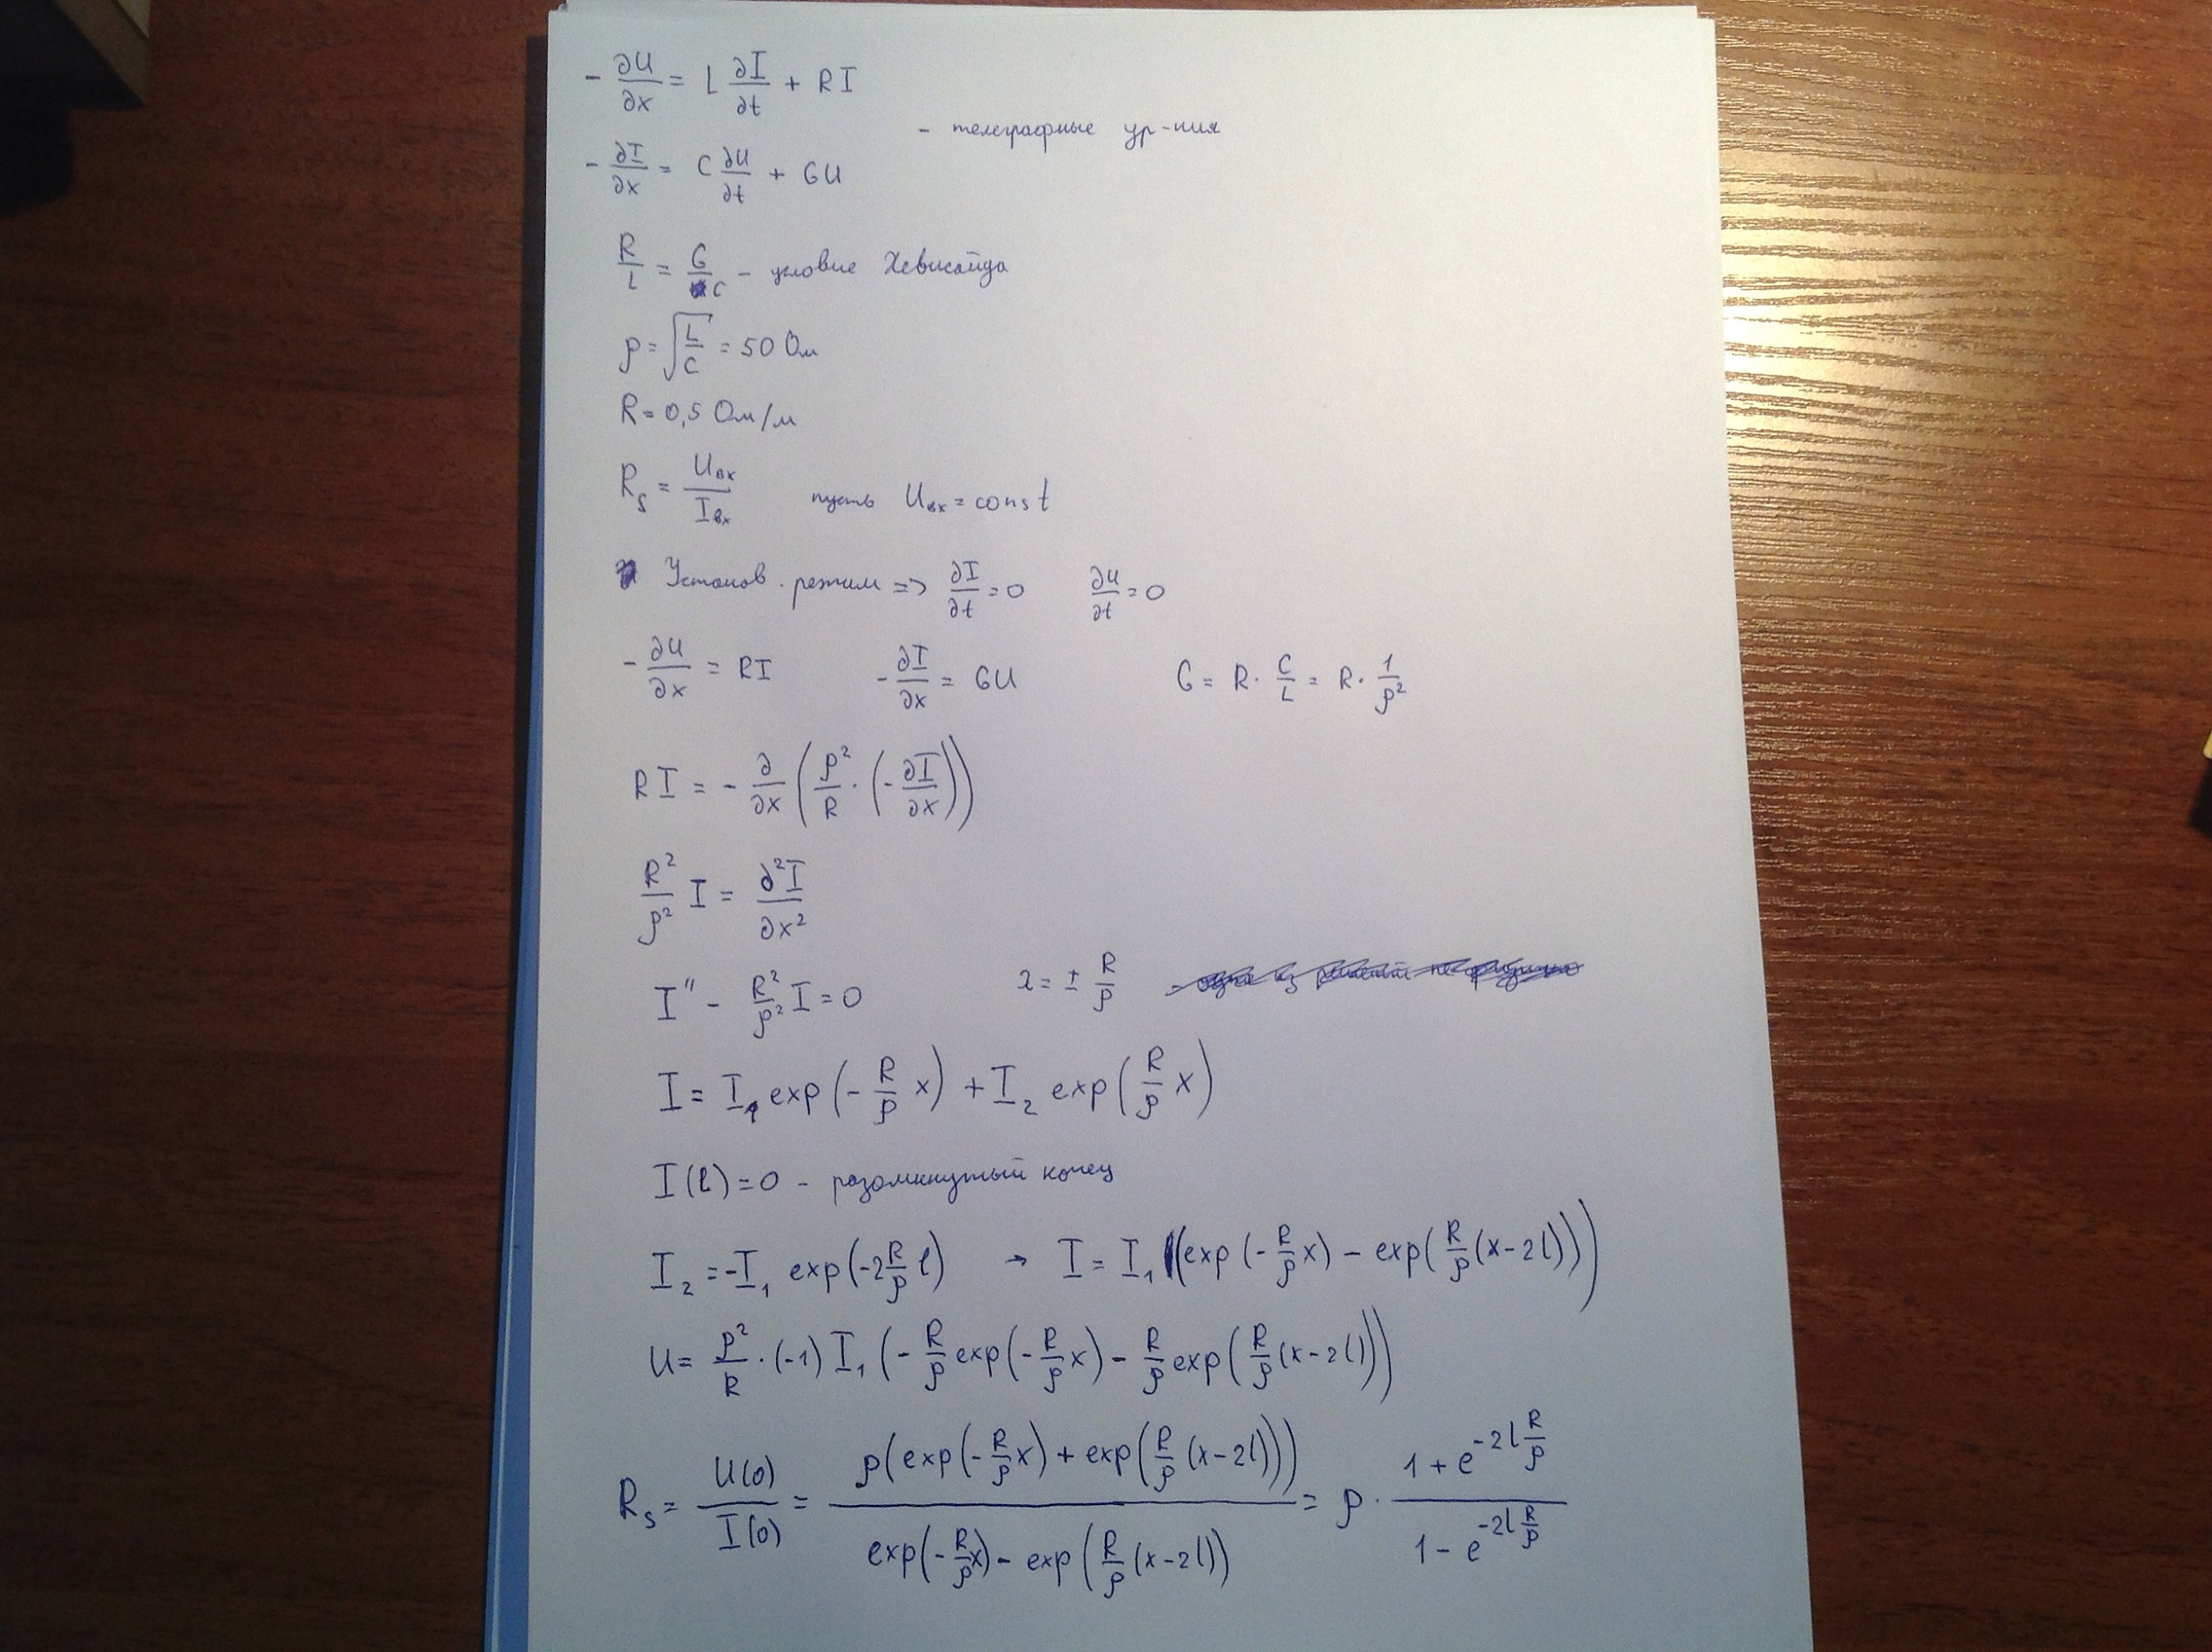 - ∂U/∂x = L ∂I/∂t + RI
- телеграфные ур-ния
- ∂I/∂x = C ∂U/∂t + GU
R/L = G/C - условие Хевисайда
ρ = √(L/C) = 50 Ом
R = 0,5 Ом/м
R_s = U_вх/I_вх пусть U_вх = const
Установ. режим => ∂I/∂t = 0 ∂U/∂t = 0
- ∂U/∂x = RI - ∂I/∂x = GU G = R · C/L = R · 1/ρ²
RI = - ∂/∂x (ρ²/R · (- ∂I/∂x))
R²/ρ² I = ∂²I/∂x²
I'' - R²/ρ² I = 0 λ = ± R/ρ
I = I₁ exp(- R/ρ x) + I₂ exp(R/ρ x)
I(l) = 0 - разомкнутый конец
I₂ = -I₁ exp(-2 R/ρ l) → I = I₁ (exp(- R/ρ x) - exp(R/ρ (x-2l)))
U = ρ²/R · (-1) I₁ (- R/ρ exp(- R/ρ x) - R/ρ exp(R/ρ (x-2l)))
R_s = U(0)/I(0) = ρ(exp(- R/ρ x) + exp(R/ρ (x-2l))) / (exp(- R/ρ x) - exp(R/ρ (x-2l))) = ρ · (1 + e^(-2l R/ρ)) / (1 - e^(-2l R/ρ))